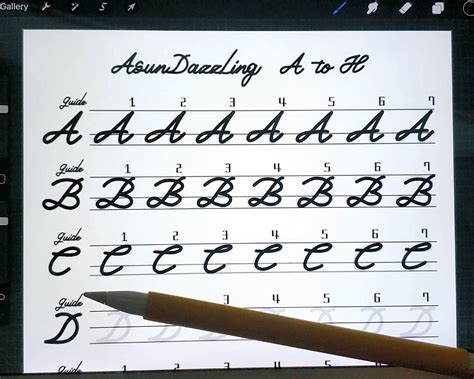 Gallery
AsunDazzLing A to H
guide 1 2 3 4 5 6 7
A A A A A A A A
guide 1 2 3 4 5 6 7
B B B B B B B B
guide 1 2 3 4 5 6 7
C C C C C C C C
guide 3 4 5 6 7
D D D D D D D
guide